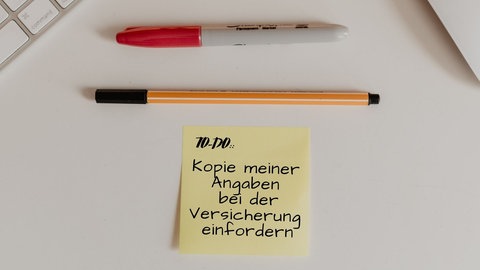 command
TO-DO::
Kopie meiner
Angaben
bei der
Versicherung
einfordern